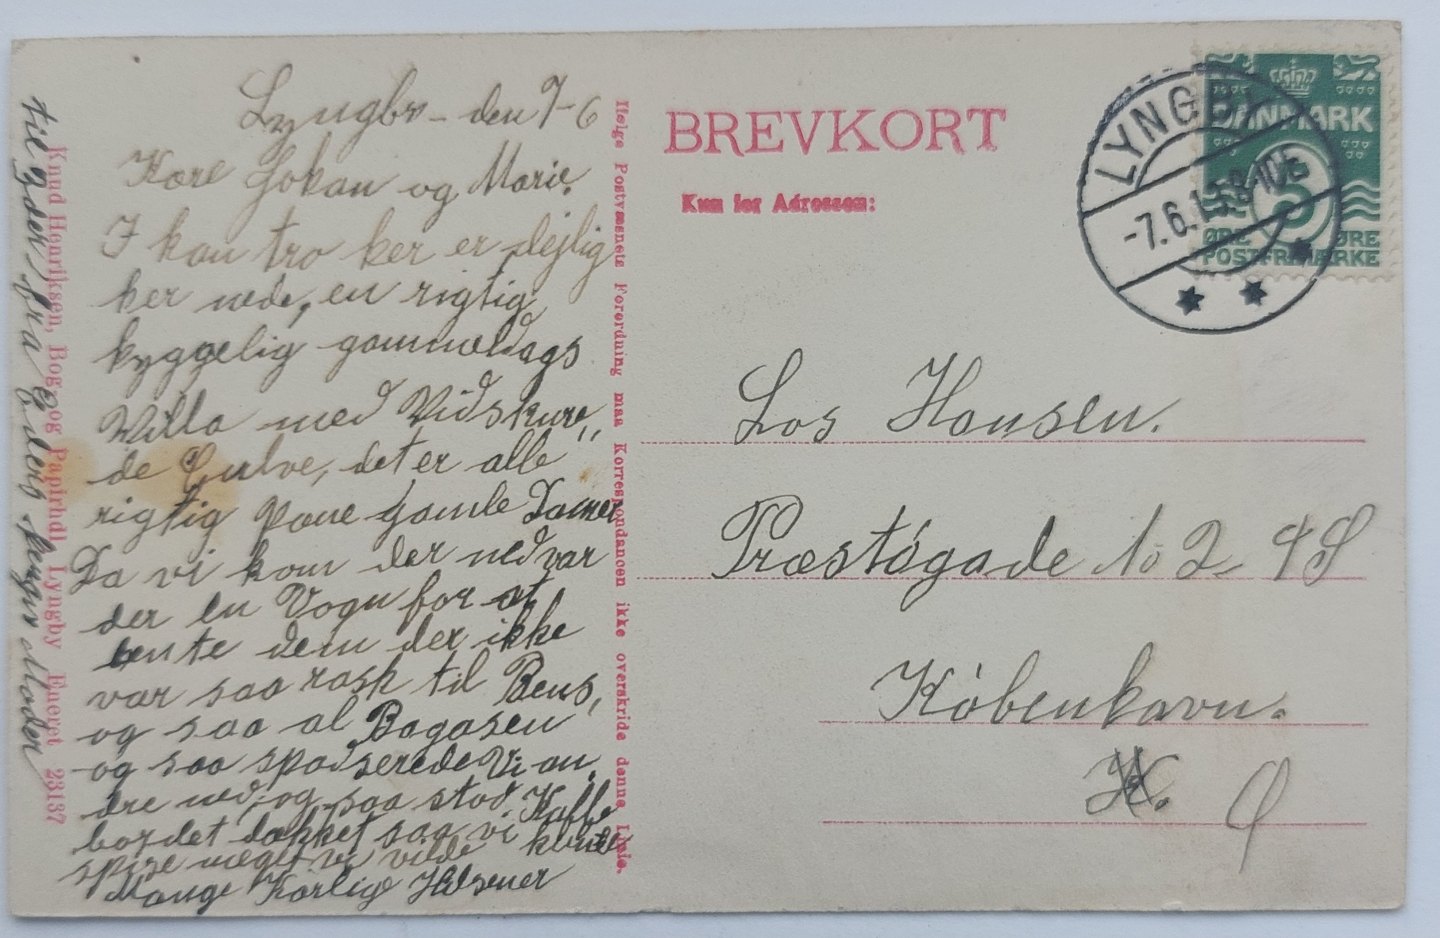 Lyngby- den 7-6
Kære Johan og Marie.
I kan tro her er dejlig
her nede, en rigtig
hyggelig gammeldags
Villa med Vidskure„
de Gulve, det er alle
rigtig pæne gamle Damer
Da vi kom der ned var
der en Vogn for at
hente dem der ikke
var saa rask til Bens,
og saa al Bagasen
og saa spadserede Vi an„
dre ned, og saa stod Kaffe
bordet dækket saa vi kunde
spise meget vi vilde
Mange Kærlige Hilsener
til Eder fra Eders Moder
Knud Henriksen, Bog- og Papirhdl. Lyngby Eneret 23137
Ifølge Postvæsnets Forordning maa Korrespondancen ikke overskride denne Linie.
BREVKORT
Kun for Adressen:
LYNGBY
-7.6.1
DANMARK
5
ØRE ØRE
POSTFRIMÆRKE
Los Hansen.
Præstøgade No 2 4S
København.
Ø